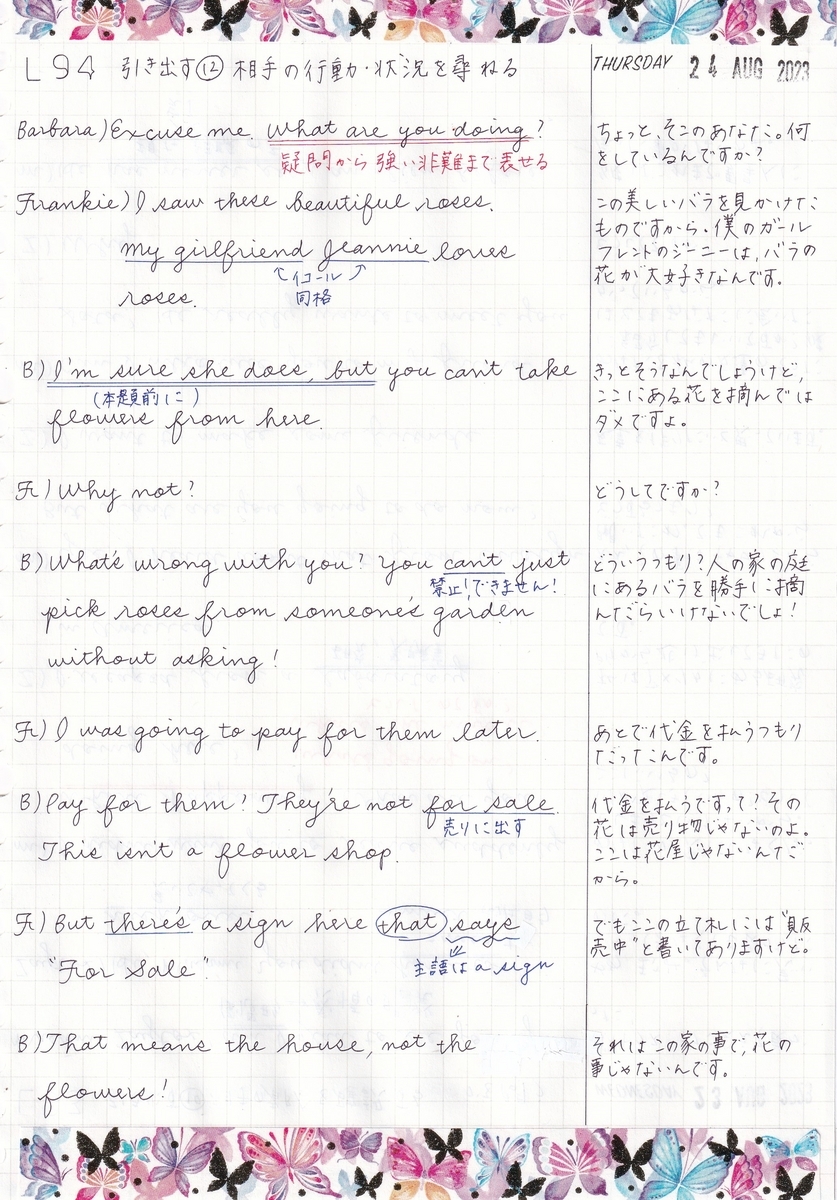 L94 引き出す⑫ 相手の行動・状況を尋ねる
THURSDAY 24 AUG 2023
Barbara) Excuse me. What are you doing?
疑問から強い非難まで表せる
ちょっと、そこのあなた。何
をしているんですか?
Frankie) I saw these beautiful roses.
My girlfriend Jeannie loves
イコール
同格
roses.
この美しいバラを見かけたた
ものですから。僕のガール
フレンドのジーニーは、バラの
花が大好きなんです。
B) I'm sure she does, but you can't take
(本題前に)
flowers from here.
きっとそうなんでしょうけど、
ここにある花を摘んでは
ダメですよ。
F) Why not?
どうしてですか?
B) What's wrong with you? You can't just
禁止!できません!
pick roses from someone's garden
without asking!
どういうつもり?人の家の庭
にあるバラを勝手に摘
んだらいけないでしょ!
F) I was going to pay for them later.
あとで代金を払うつもり
だったんです。
B) Pay for them? They're not for sale.
売りに出す
This isn't a flower shop.
代金を払うですって?その
花は売り物じゃないのよ。
ここは花屋じゃないんだ
から。
F) But there's a sign here that says
主語は a sign
"For Sale".
でもここの立て札には"販
売中"と書いてありますけど。
B) That means the house, not the
flowers!
それはこの家の事で、花の
事じゃないんです。